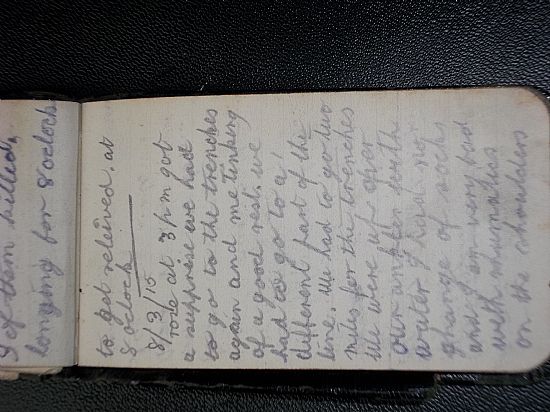 of them killed,
longing for 8 oclock
to get releived, at
8 oclock
8/3/15
rose at 3 pm got
a supprise we had
to go to the trenches
again and me tinking
of a good rest, we
had to go to a
different part of the
line. We had to go two
miles for the trenches
We were up over
our ankles with
water I had no
change of socks
and I am very bad
with rhumatics
on the shoulders